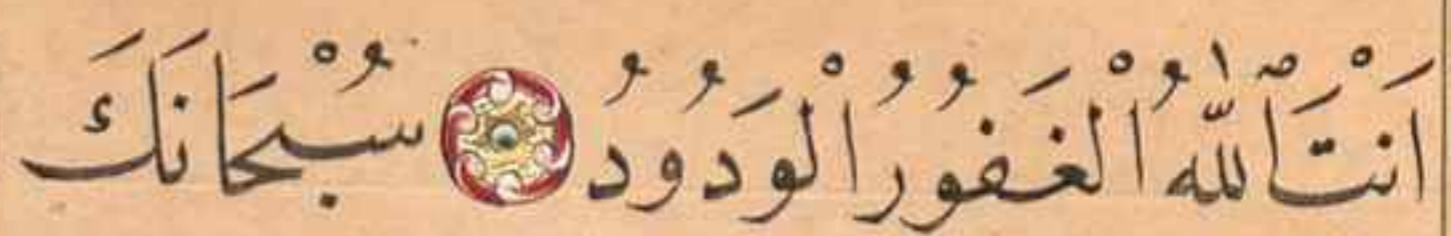 اَنْتَ اللّٰهُ الْغَفُورُ الْوَدُودُ سُبْحَانَكَ